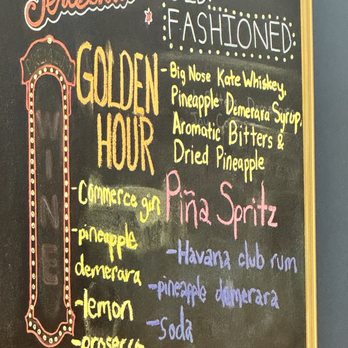 FASHIONED
- Big Nose Kate Whiskey,
Pineapple Demerara Syrup,
Aromatic Bitters &
Dried Pineapple
GOLDEN
HOUR
- Commerce gin
- pineapple
demerara
- lemon
- prosecco
Piña Spritz
- Havana club rum
- pineapple demerara
- soda
WINE